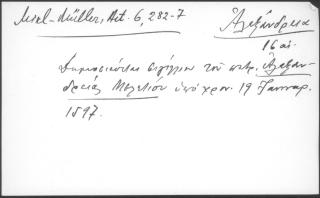 Misel-Müller, Act. 6, 282-7
Ἀλεξάνδρεια
16 αἰ.
Δημοσιεύεται σιγίλλιον τοῦ πατρ. Ἀλεξαν-
δρείας Μελετίου ὑπὸ χρον. 19 Ἰανουαρ.
1597.